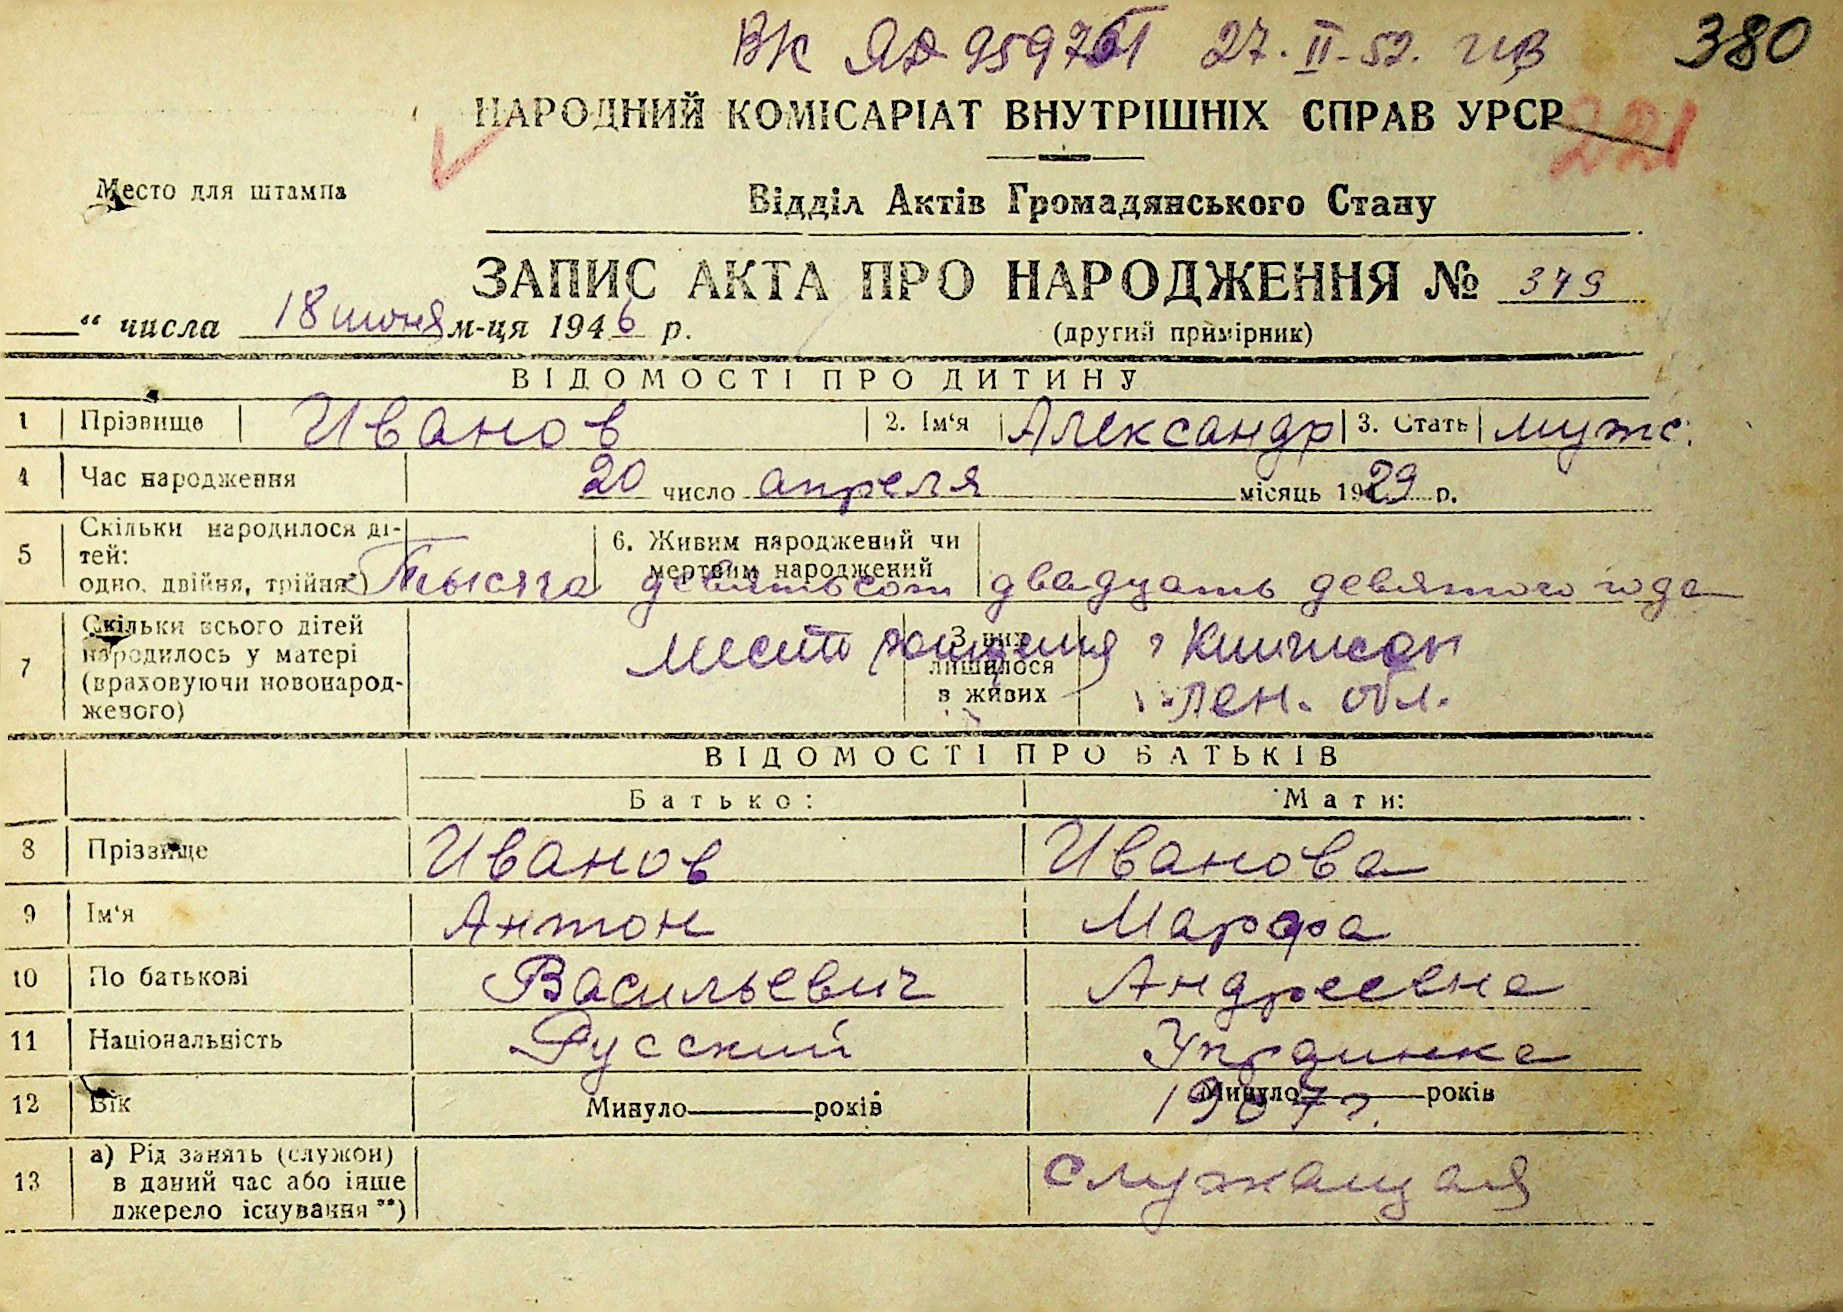 ВК ЯД 27.II-52.
380
НАРОДНИЙ КОМІСАРІАТ ВНУТРІШНІХ СПРАВ УРСР
221
Место для штампа
Відділ Актів Громадянського Стану
ЗАПИС АКТА ПРО НАРОДЖЕННЯ № 379
“ числа 18 июня м-ця 1946 р.
(другий примірник)
ВІДОМОСТІ ПРО ДИТИНУ
1 Прізвище Иванов 2. Ім‘я Александр 3. Стать мужс.
4 Час народження 20 число апреля місяць 1929 р.
5 Скільки народилося дітей: одно, двійня, трійня*) 6. Живим народжений чи мертвим народжений
Тысяча девятьсот двадцать девятого года
7 Скільки всього дітей народилось у матері (враховуючи новонародженого) З них лишилося в живих
г. Кингисеп
Лен. обл.
ВІДОМОСТІ ПРО БАТЬКІВ
Батько: Мати:
8 Прізвище Иванов Иванова
9 Ім‘я Антон Марфа
10 По батькові Васильевич Андреевна
11 Національність Русский Украинка
12 Вік Минуло років Минуло років
1907 г.
13 а) Рід занять (служби) в даний час або інше джерело існування **) Служащая